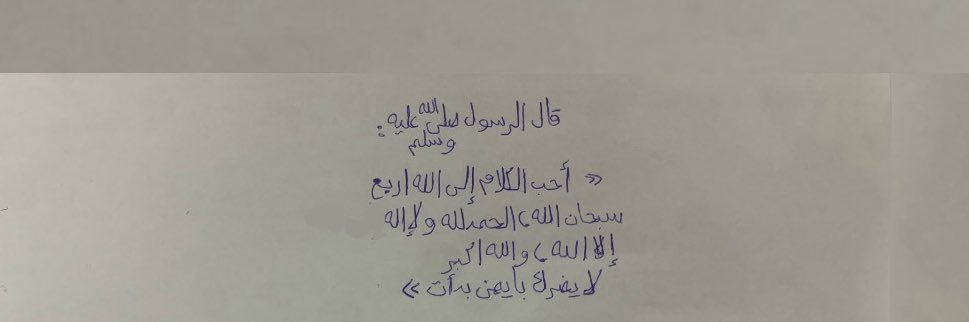 قال الرسول صلى الله عليه وسلم:
« أحب الكلام إلى الله اربع
سبحان الله، الحمد لله ولا إله
إلا الله، و الله اكبر
لا يضرك بايهن بدأت »